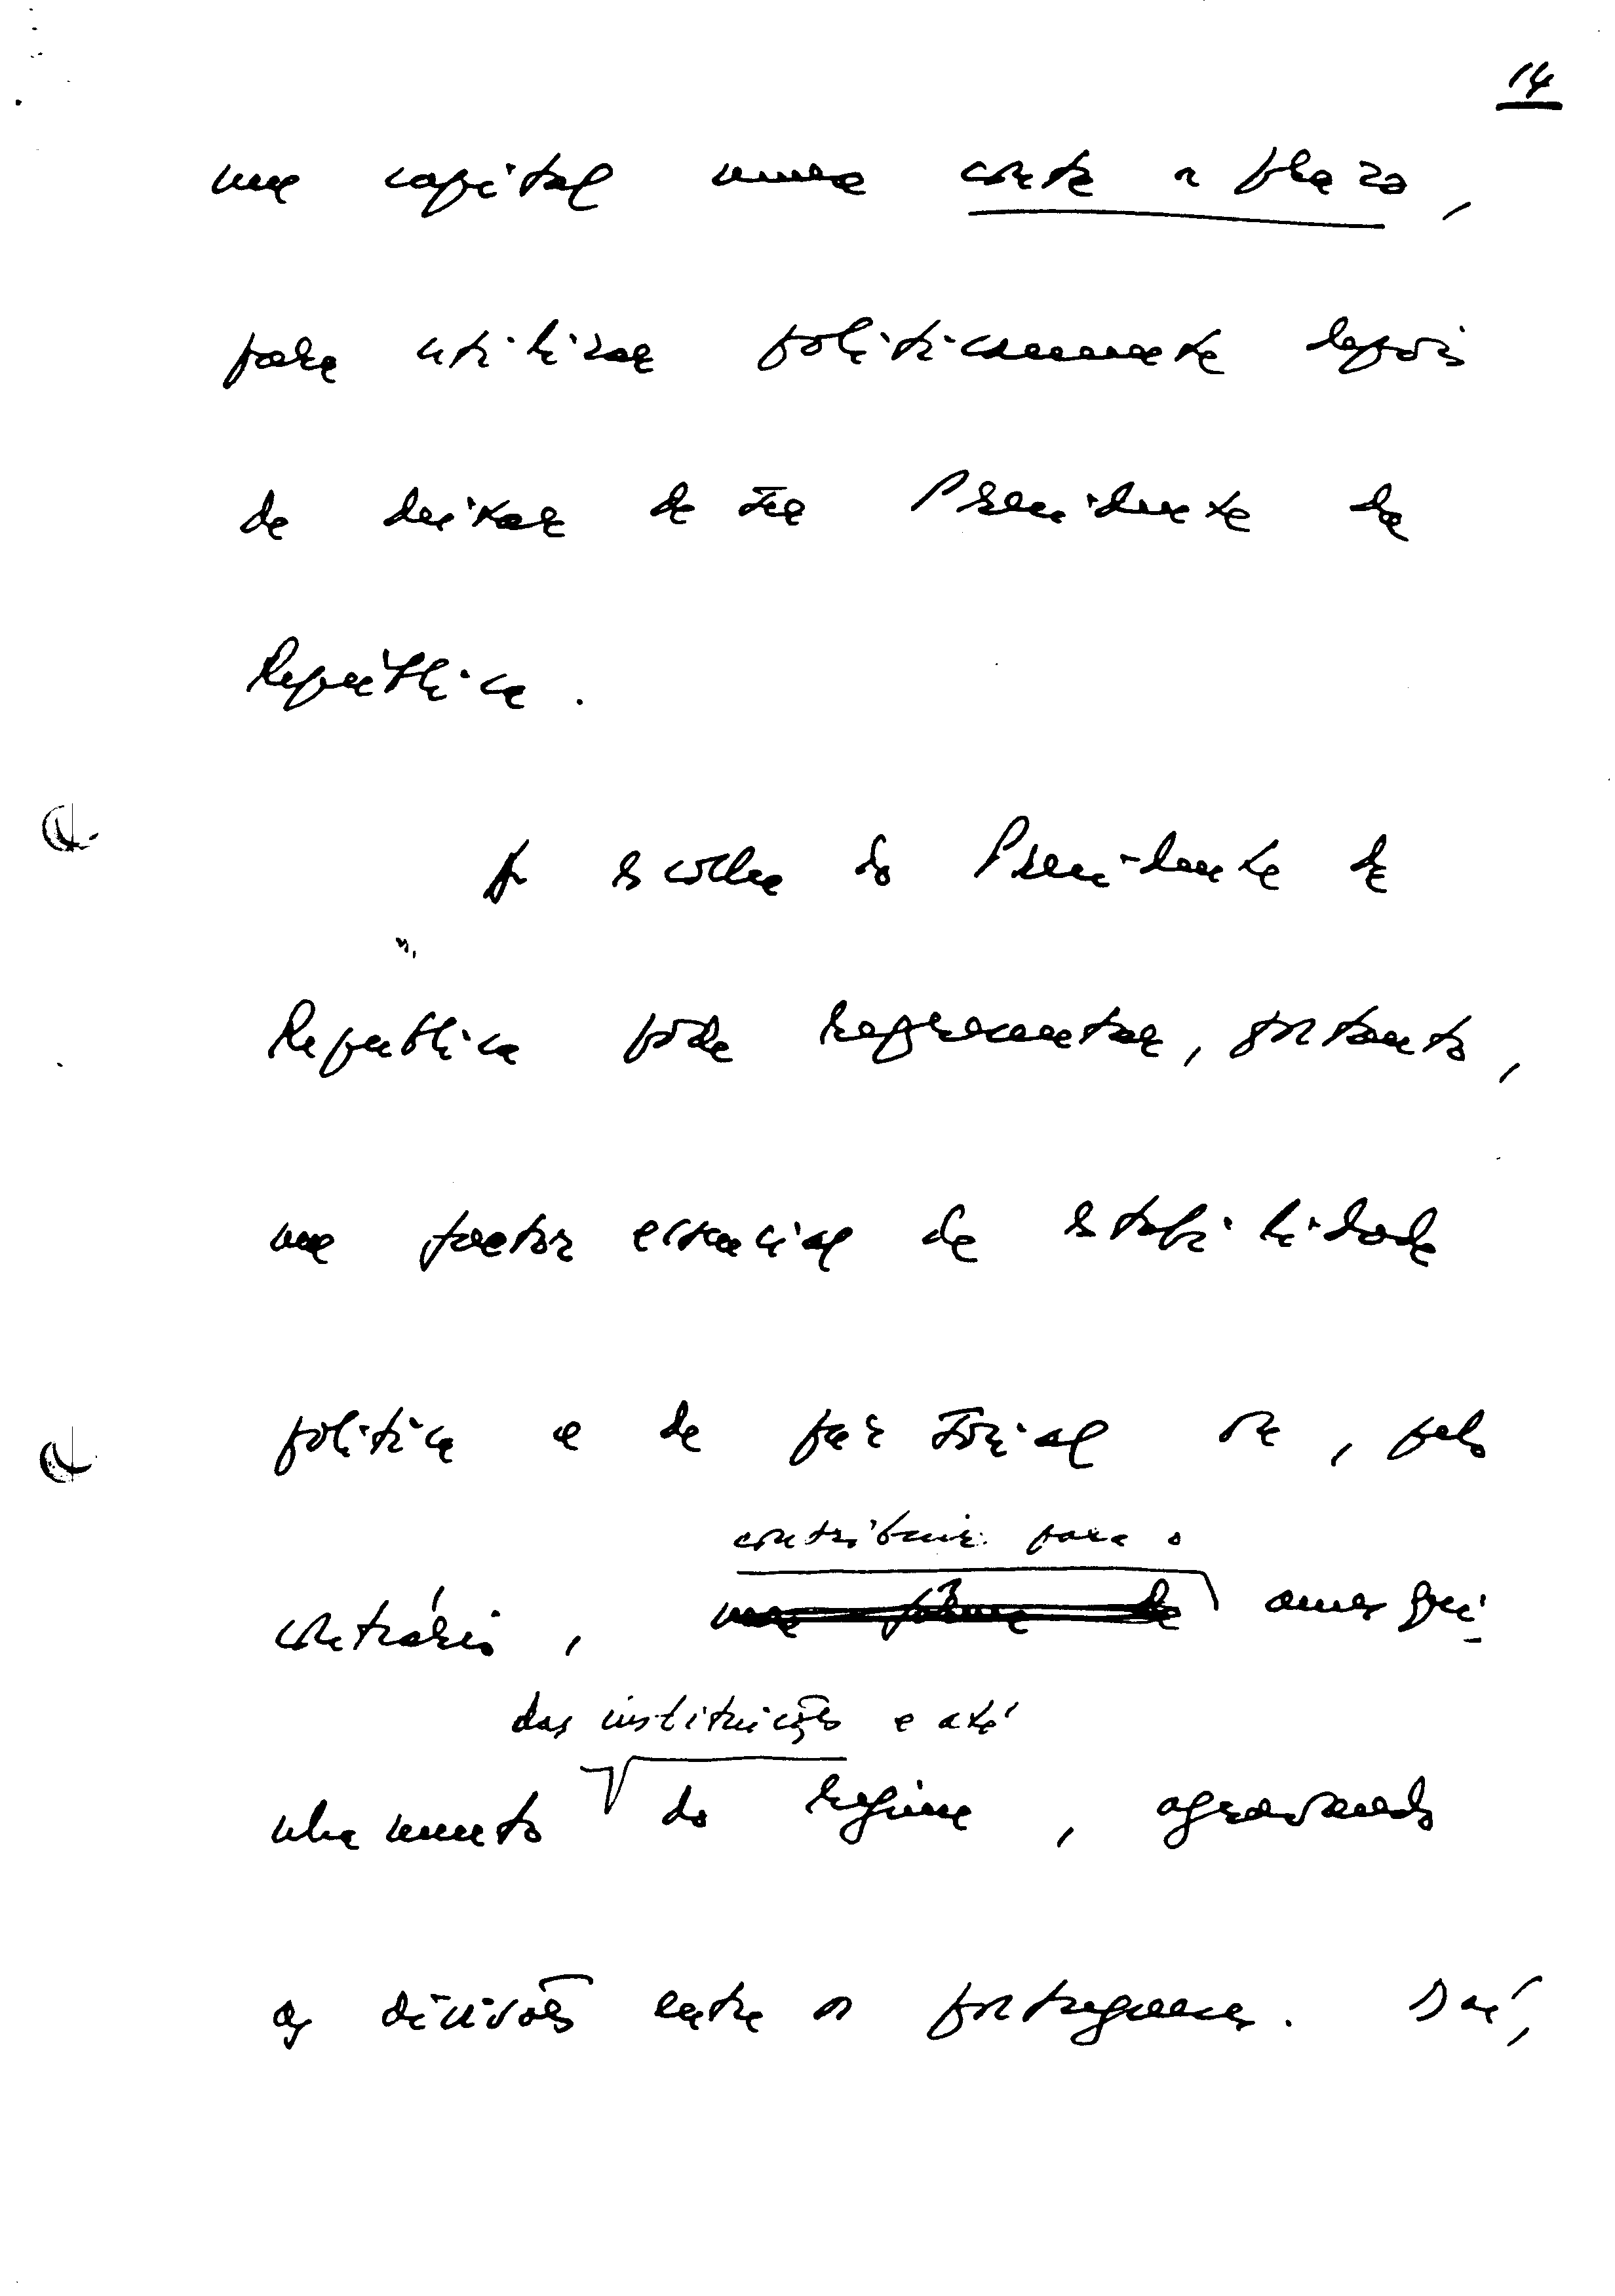 14
um capital numa conta a prazo,
para utilizar politicamente depois
de deixar de ser Presidente da
República.
A escolha do Presidente da
República pode representar, portanto,
um factor essencial de estabilidade
política e de paz social ou, pelo
contribuir para o
contrário, uma forma de amesqui-
das instituições e até
nhamento do regime, agravando
as divisões entre os portugueses. Daí,